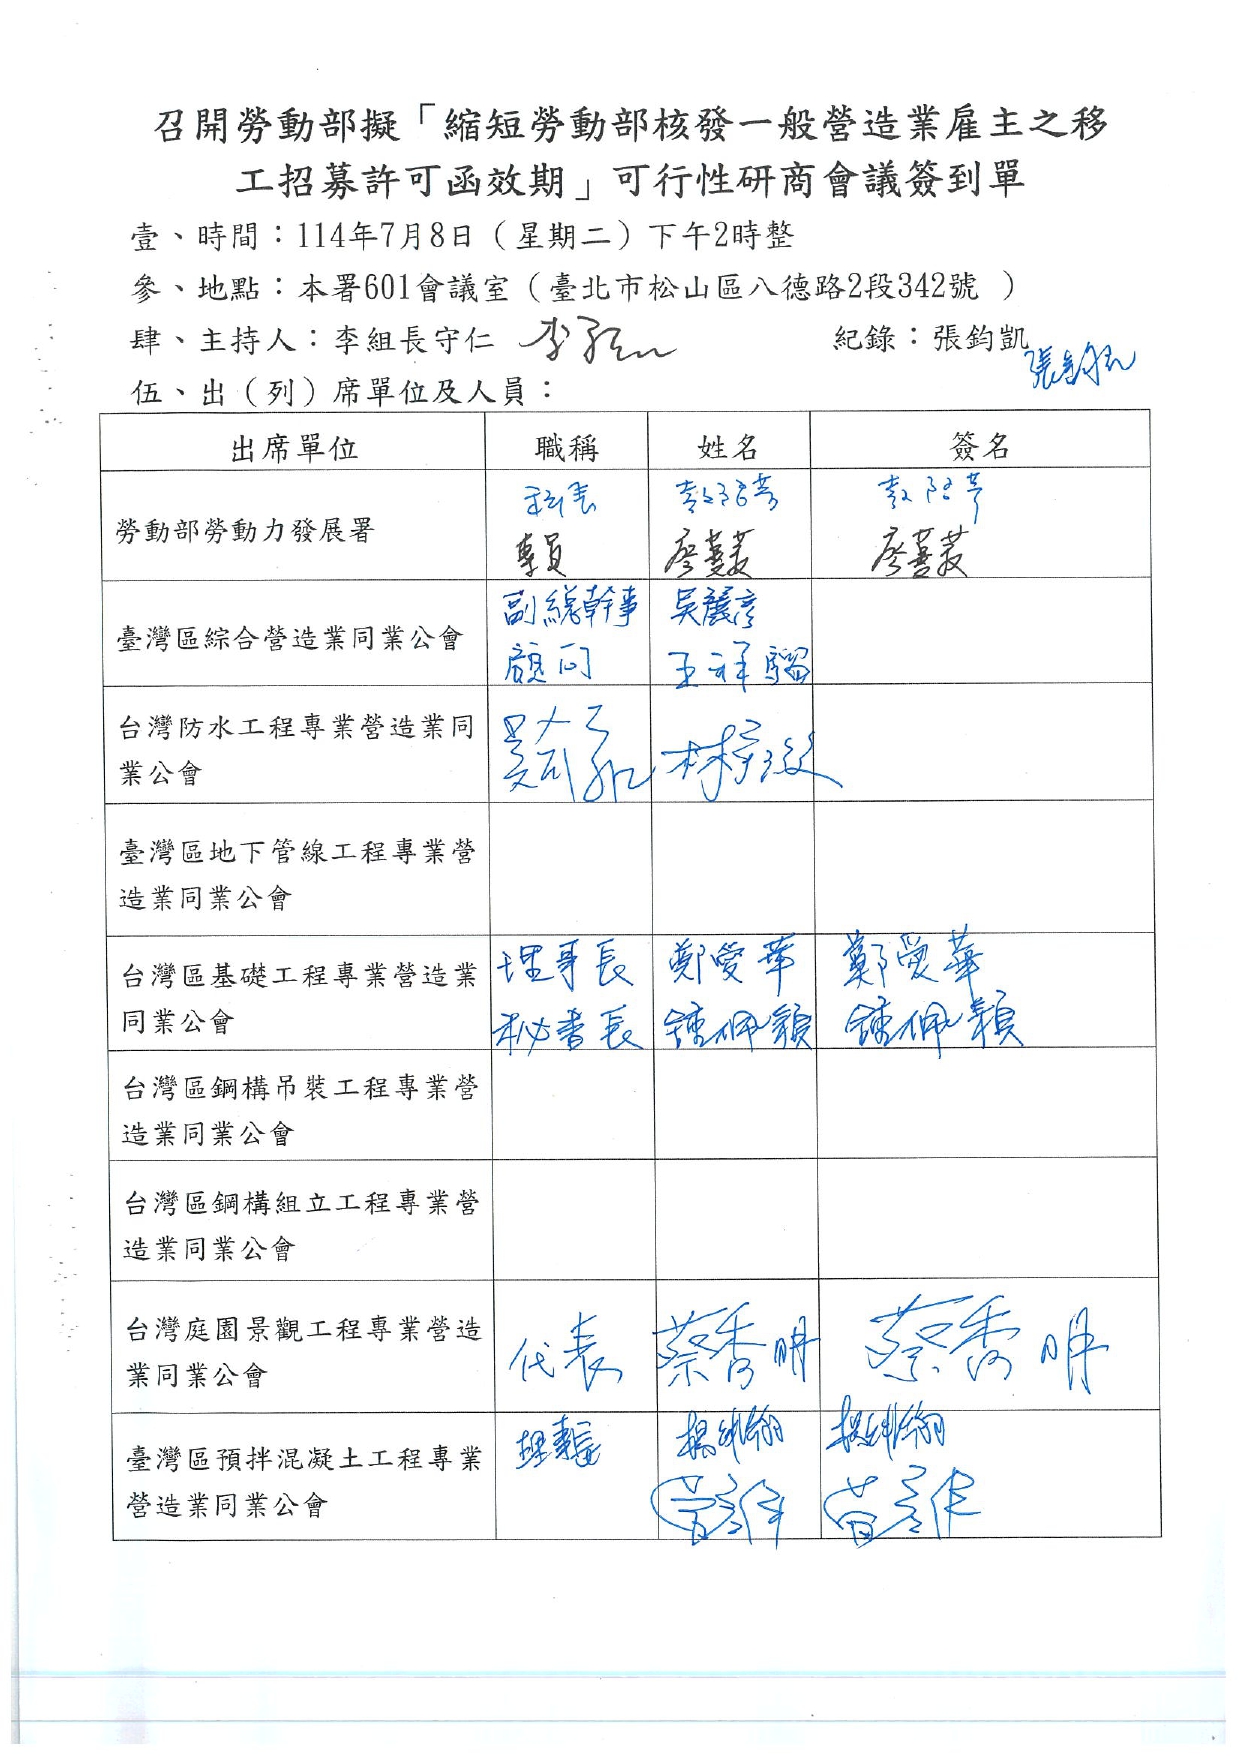 召開勞動部擬「縮短勞動部核發一般營造業雇主之移
工招募許可函效期」可行性研商會議簽到單
壹、時間：114年7月8日（星期二）下午2時整
參、地點：本署601會議室（臺北市松山區八德路2段342號 ）
肆、主持人：李組長守仁 紀錄：張鈞凱
張鈞凱
伍、出（列）席單位及人員：
出席單位 職稱 姓名 簽名
科長
勞動部勞動力發展署
專員 廖蕙菱 廖蕙菱
副總幹事 吳麗彥
臺灣區綜合營造業同業公會
顧問 王祥騮
台灣防水工程專業營造業同
業公會
臺灣區地下管線工程專業營
造業同業公會
理事長 鄭愛華 鄭愛華
台灣區基礎工程專業營造業
同業公會
秘書長 鍾佩穎 鍾佩穎
台灣區鋼構吊裝工程專業營
造業同業公會
台灣區鋼構組立工程專業營
造業同業公會
台灣庭園景觀工程專業營造
業同業公會
代表 蔡秀明 蔡秀明
理事長
臺灣區預拌混凝土工程專業
營造業同業公會